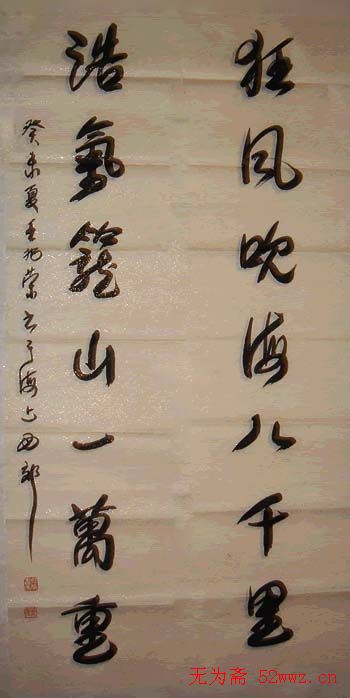 狂风吹海八千里
浩氣籠山一萬重
癸未夏王兆荣书于海上西郊
无为斋 52wwz.cn